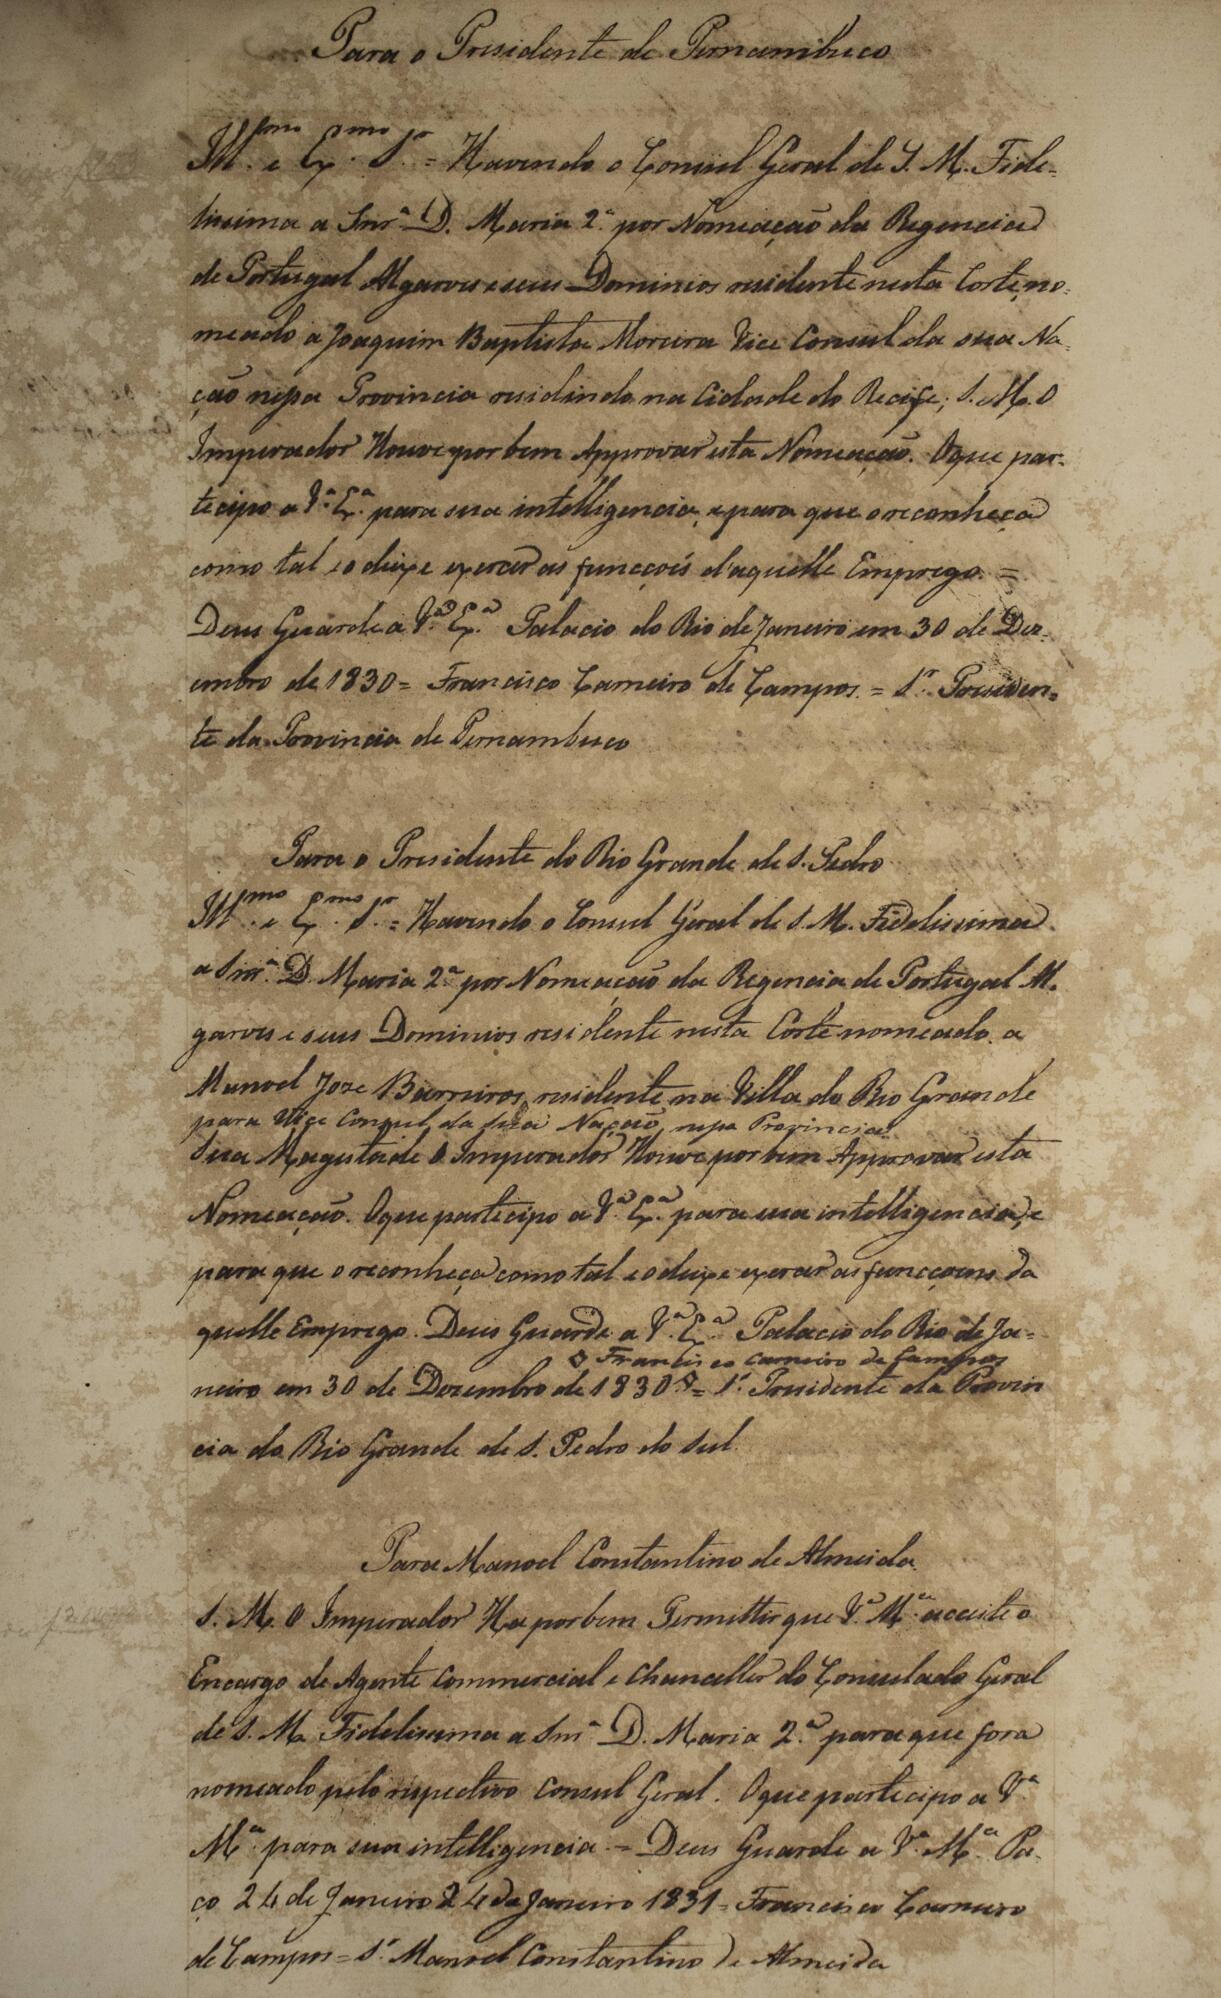 Para o Presidente de Pernambuco
Ill.mo e Ex.mo S.r = Havendo o Consul Geral de S. M. Fide-
lissima a Snr.a D. Maria 2.a por Nomeação da Regencia
de Portugal Algarves e seus Dominios residente nesta Corte, no-
meado a Joaquim Baptista Moreira Vice Consul da sua Na-
ção nessa Provincia residindo na Cidade do Recife; S. M. O
Imperador Houve por bem Approvar esta Nomeação. O que par-
tecipo a V.a Ex.a para sua intelligencia, e para que o reconheça
como tal e o deixe exercer as funcçois d'aquelle Emprego. =
Deus Guarde a V.a Ex.a Palacio do Rio de Janeiro em 30 de Dez-
embro de 1830 = Francisco Carneiro de Campos = S.r Presiden-
te da Provincia de Pernambuco
Para o Presidente do Rio Grande de S. Pedro
Ill.mo e Ex.mo S.r = Havendo o Consul Geral de S. M. Fidelissima
a Snr.a D. Maria 2.a por Nomeação da Regencia de Portugal Al-
garves e seus Dominios residente nesta Corte nomeado a
Manoel Joze Barreiros, residente na Villa do Rio Grande
para Vice Consul da sua Nação nessa Provincia
Sua Magestade O Imperador Houve por bem Approvar esta
Nomeação. O que partecipo a V.a Ex.a para sua intelligencia, e
para que o reconheça como tal e o deixe exercer as funcçoens da
quelle Emprego. Deus Guarde a V.a Ex.a Palacio do Rio de Ja-
Francisco Carneiro de Campos
neiro em 30 de Dezembro de 1830 = S.r Presidente da Provin
cia do Rio Grande de S. Pedro do Sul
Para Manoel Constantino de Almeida
S. M. O Imperador Ha por bem Permittir que V.a M.ce acceite o
Encargo de Agente Commercial e Chanceller do Consulado Geral
de S. M. Fidelissima a Snr.a D. Maria 2.a para que fora
nomeado pelo respectivo Consul Geral. O que partecipo a V.a
M.ce para sua intelligencia = Deus Guarde a V.a M.ce Pa-
ço 24 de Janeiro 24 de Janeiro 1831 = Francisco Carneiro
de Campos = S.r Manoel Constantino de Almeida